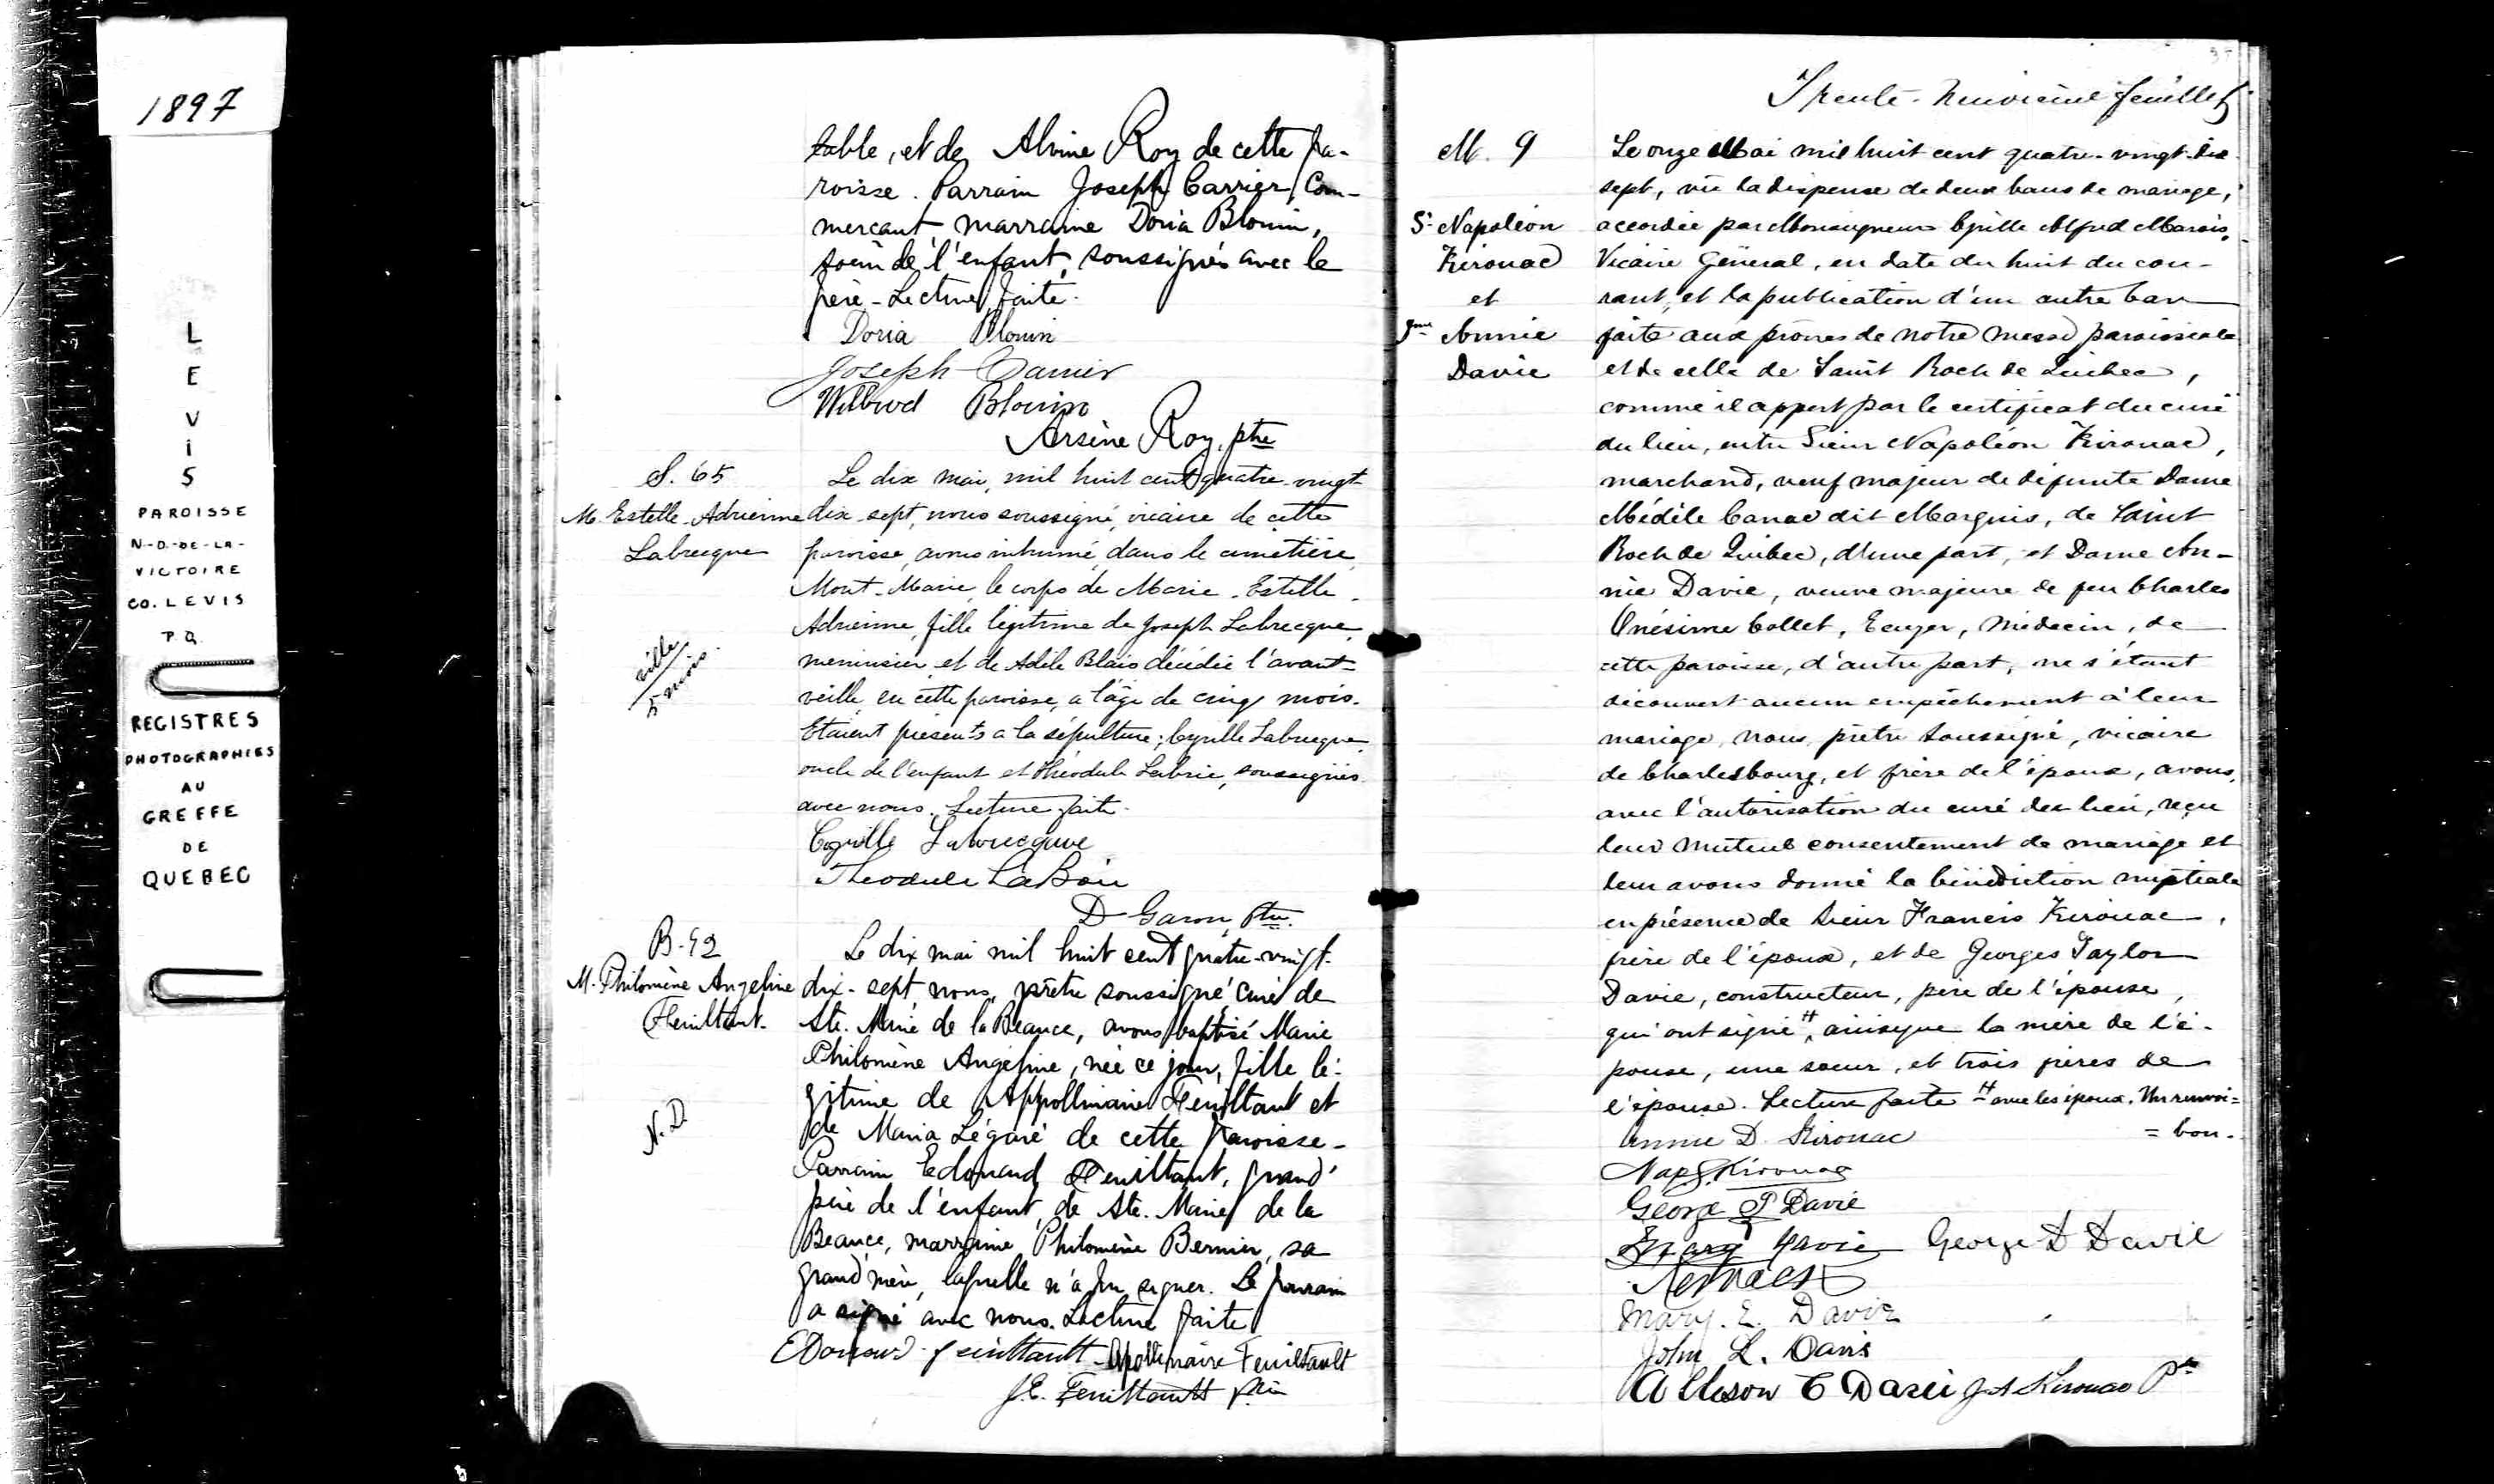 1897
L
E
V
I
S
PAROISSE
N-D-DE-LA-
VICTOIRE
CO. LEVIS
P.Q.
REGISTRES
PHOTOGRAPHIES
AU
GREFFE
DE
QUEBEC
table, et de Alvine Roy de cette pa-
roisse. Parrain Joseph Carrier, Com-
merçant, marraine Doria Blouin,
soeur de l'enfant, soussignés avec le
père - Lecture faite.
Doria Blouin
Joseph Carrier
Wilbrod Blouin
Arsène Roy, ptre
S. 65
M. Estelle-Adrienne
Labrecque
ville
5 mois.
Le dix mai, mil huit cent quatre-vingt
dix-sept, nous soussigné, vicaire de cette
paroisse, avons inhumé, dans le cimetière
Mont-Marie, le corps de Marie-Estelle-
Adrienne, fille légitime de Joseph Labrecque,
menuisier, et de Adèle Blais décédée l'avant-
veille, en cette paroisse, a l'âge de cinq mois.
Etaient présents a la sépulture; Cyrille Labrecque,
oncle de l'enfant et Théodule Labrie, soussignés
avec nous. Lecture faite.
Cyrille Labrecque
Theodule LaBrie
D Garon, Ptre.
B-92
M. Philomène Angeline
Feuiltault.
N.D.
Le dix mai mil huit cent quatre-vingt-
dix-sept, nous, prêtre soussigné, curé de
Ste. Marie de la Beauce, avons baptisé Marie
Philomène Angéline, née ce jour, fille lé-
gitime de Appollinaire Feuiltault et
de Maria Légaré de cette paroisse-
Parrain Edouard Feuiltault, grand'
père de l'enfant, de Ste. Marie de la
Beauce, marraine Philomène Bernier, sa
grand'mère, laquelle n'a pu signer. Le parrain
a signé avec nous. Lecture faite
Edouard Feuiltault - Apollinaire Feuiltault
J.E. Feuiltault ptre
Trente-neuvième feuillet
M. 9
Sr Napoléon
Kirouac
et
Dme Annie
Davie
Le onze Mai mil huit cent quatre-vingt-dix-
sept, vû la dispense de deux bans de mariage,
accordée par Monseigneur Cyrille Alfred Marois,
Vicaire Général, en date du huit du cou-
rant, et la publication d'un autre ban
faite aux prônes de notre messe paroissiale
et de celle de Saint Roch de Québec,
comme il appert par le certificat du curé
du lieu, entre Sieur Napoléon Kirouac,
marchand, veuf majeur de défunte Dame
Médèle Canac dit Marquis, de Saint
Roch de Québec, d'une part, et Dame An-
nie Davie, veuve majeure de feu Charles
Onésime Collet, Ecuyer, médecin, de
cette paroisse, d'autre part, ne s'étant
découvert aucun empêchement à leur
mariage, nous, prêtre soussigné, vicaire
de Charlesbourg, et frère de l'époux, avons,
avec l'autorisation du curé du lieu, reçu
leur mutuel consentement de mariage et
leur avons donné la bénédiction nuptiale
en présence de Sieur Francis Kirouac,
frère de l'époux, et de Georges Taylor
Davie, constructeur, père de l'épouse,
qui ont signé #, ainsi que la mère de l'é-
pouse, une soeur, et trois frères de
l'épouse. Lecture faite # avec les époux. Un renvoi =
= bon.
Annie D. Kirouac
Nap G. Kirouac
George T Davie
Mary Davie George D Davie
Mary. E. Davie
John L. Davie
Allison C Davie J A Kirouac Ptre